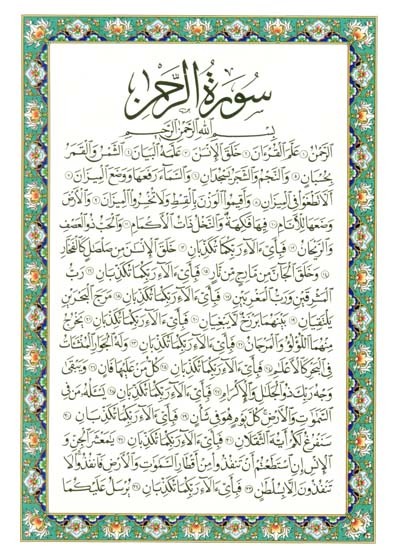 سُورَةُ الرَّحْمٰن
بِسْمِ اللَّهِ الرَّحْمَٰنِ الرَّحِيمِ
الرَّحْمَٰنُ ۱ عَلَّمَ الْقُرْءَانَ ۲ خَلَقَ الْإِنسَٰنَ ۳ عَلَّمَهُ الْبَيَانَ ۴ الشَّمْسُ وَالْقَمَرُ
بِحُسْبَانٍ ۵ وَالنَّجْمُ وَالشَّجَرُ يَسْجُدَانِ ۶ وَالسَّمَاءَ رَفَعَهَا وَوَضَعَ الْمِيزَانَ ۷
أَلَّا تَطْغَوْا فِي الْمِيزَانِ ۸ وَأَقِيمُوا الْوَزْنَ بِالْقِسْطِ وَلَا تُخْسِرُوا الْمِيزَانَ ۹ وَالْأَرْضَ
وَضَعَهَا لِلْأَنَامِ ۱۰ فِيهَا فَٰكِهَةٌ وَالنَّخْلُ ذَاتُ الْأَكْمَامِ ۱۱ وَالْحَبُّ ذُو الْعَصْفِ
وَالرَّيْحَانُ ۱۲ فَبِأَيِّ ءَالَاءِ رَبِّكُمَا تُكَذِّبَانِ ۱۳ خَلَقَ الْإِنسَٰنَ مِن صَلْصَٰلٍ كَالْفَخَّارِ
۱۴ وَخَلَقَ الْجَانَّ مِن مَّارِجٍ مِّن نَّارٍ ۱۵ فَبِأَيِّ ءَالَاءِ رَبِّكُمَا تُكَذِّبَانِ ۱۶ رَبُّ
الْمَشْرِقَيْنِ وَرَبُّ الْمَغْرِبَيْنِ ۱۷ فَبِأَيِّ ءَالَاءِ رَبِّكُمَا تُكَذِّبَانِ ۱۸ مَرَجَ الْبَحْرَيْنِ
يَلْتَقِيَانِ ۱۹ بَيْنَهُمَا بَرْزَخٌ لَّا يَبْغِيَانِ ۲۰ فَبِأَيِّ ءَالَاءِ رَبِّكُمَا تُكَذِّبَانِ ۲۱ يَخْرُجُ
مِنْهُمَا اللُّؤْلُؤُ وَالْمَرْجَانُ ۲۲ فَبِأَيِّ ءَالَاءِ رَبِّكُمَا تُكَذِّبَانِ ۲۳ وَلَهُ الْجَوَارِ الْمُنشَئَاتُ
فِي الْبَحْرِ كَالْأَعْلَٰمِ ۲۴ فَبِأَيِّ ءَالَاءِ رَبِّكُمَا تُكَذِّبَانِ ۲۵ كُلُّ مَنْ عَلَيْهَا فَانٍ ۲۶ وَيَبْقَىٰ
وَجْهُ رَبِّكَ ذُو الْجَلَٰلِ وَالْإِكْرَامِ ۲۷ فَبِأَيِّ ءَالَاءِ رَبِّكُمَا تُكَذِّبَانِ ۲۸ يَسْـَٔلُهُ مَن فِي
السَّمَٰوَٰتِ وَالْأَرْضِ كُلَّ يَوْمٍ هُوَ فِي شَأْنٍ ۲۹ فَبِأَيِّ ءَالَاءِ رَبِّكُمَا تُكَذِّبَانِ ۳۰
سَنَفْرُغُ لَكُمْ أَيُّهَ الثَّقَلَانِ ۳۱ فَبِأَيِّ ءَالَاءِ رَبِّكُمَا تُكَذِّبَانِ ۳۲ يَٰمَعْشَرَ الْجِنِّ وَ
الْإِنسِ إِنِ اسْتَطَعْتُمْ أَن تَنفُذُوا مِنْ أَقْطَارِ السَّمَٰوَٰتِ وَالْأَرْضِ فَانفُذُوا لَا
تَنفُذُونَ إِلَّا بِسُلْطَٰنٍ ۳۳ فَبِأَيِّ ءَالَاءِ رَبِّكُمَا تُكَذِّبَانِ ۳۴ يُرْسَلُ عَلَيْكُمَا